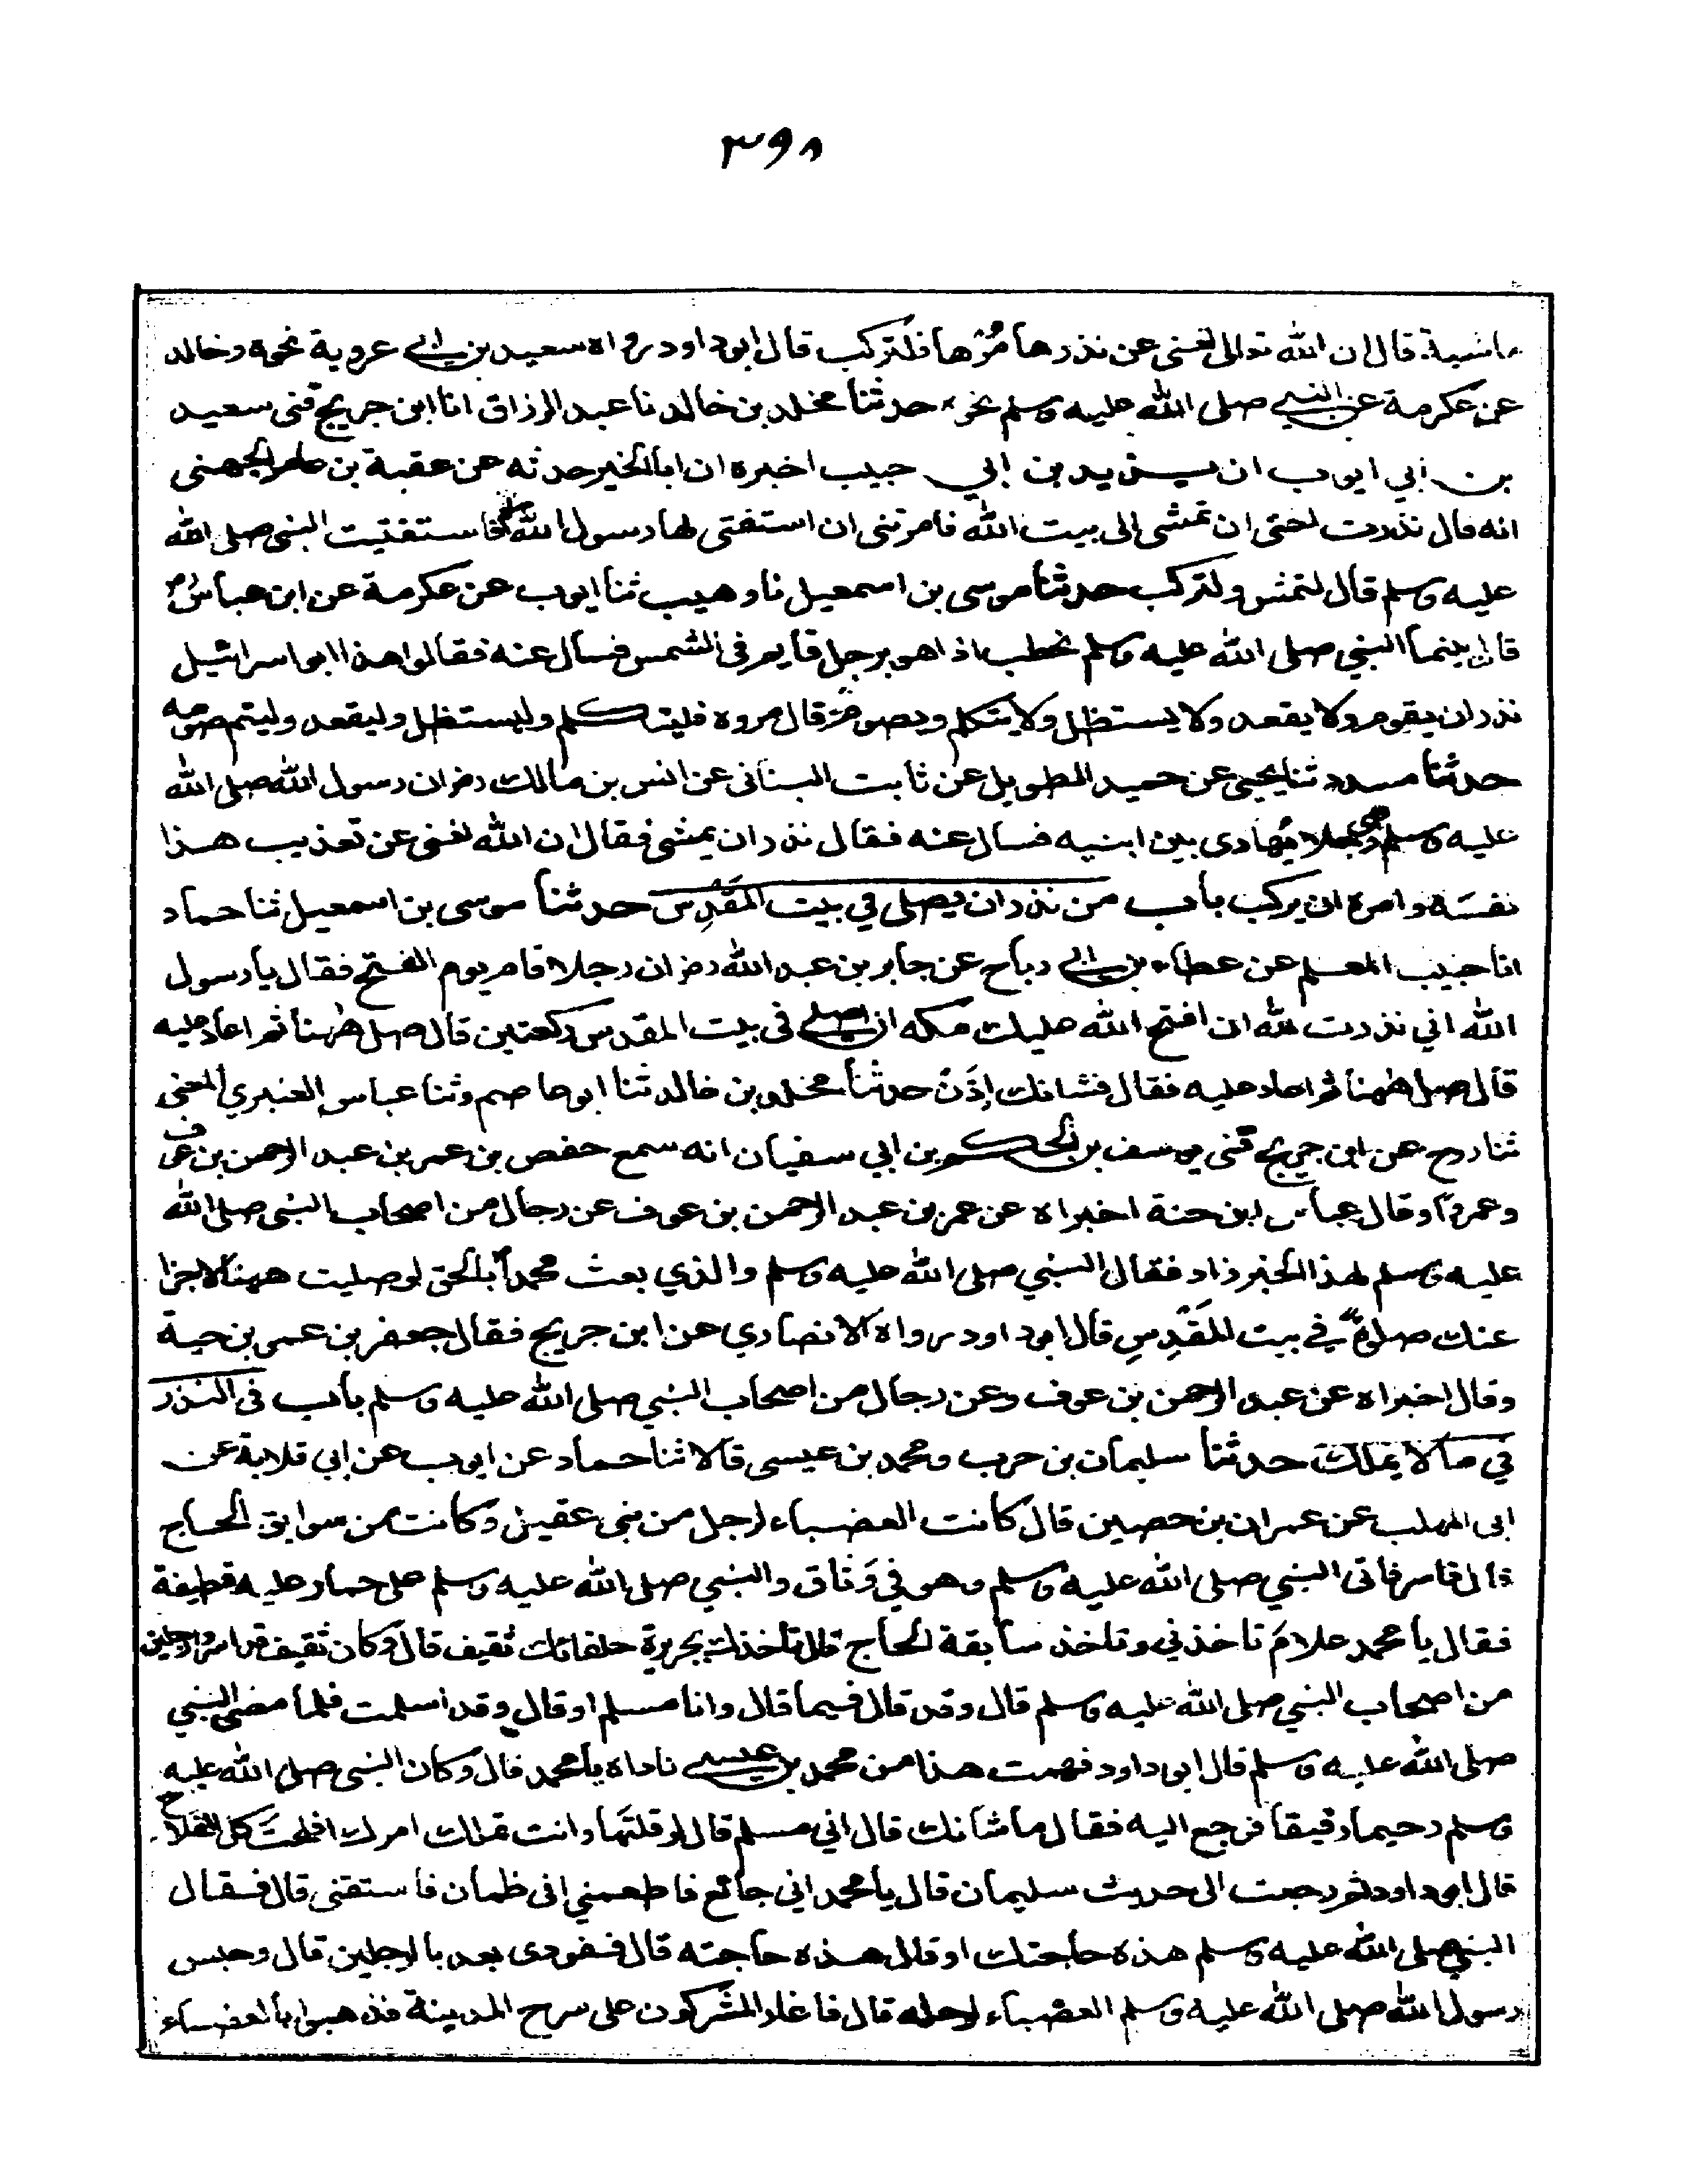 ٣٩٨
ماشية قال ان الله تعالى لغنى عن نذرها مُرْها فلتركب قال ابو داود رواه سعيد بن ابي عروبة نحوه وخالد
عن عكرمة عن النبي صلى الله عليه وسلم نحوه حدثنا مخلد بن خالد نا عبد الرزاق انا ابن جريج ثنى سعيد
بن ابي ايوب ان يزيد بن ابي حبيب اخبره ان ابا الخير حدثه عن عقبة بن عامر الجهنى
انه قال نذرت اختى ان تمشى الى بيت الله فامرتنى ان استفتى لها رسول الله فاستفتيت النبى صلى الله
عليه وسلم قال لتمش ولتركب حدثنا موسى بن اسمعيل نا وهيب ثنا ايوب عن عكرمة عن ابن عباس
قال بينما النبي صلى الله عليه وسلم يخطب اذا هو برجل قايم فى الشمس فسأل عنه فقالوا هذا ابو اسرائيل
نذر ان يقوم ولا يقعد ولا يستظل ولا يتكلم ويصوم قال مروه فليتكلم وليستظل وليقعد وليتم صومه
حدثنا مسدد ثنا يحيى عن حميد الطويل عن ثابت البنانى عن انس بن مالك رض ان رسول الله صلى الله
عليه وسلم رأى رجلا يُهَادى بين ابنيه فسال عنه فقال نذر ان يمشى فقال ان الله لغنى عن تعذيب هذا
نفسَه وامره ان يركب باب من نذر ان يصلى في بيت المَقْدِس حدثنا موسى بن اسمعيل ثنا حماد
انا حبيب المعلم عن عطاء بن ابي رباح عن جابر بن عبد الله رض ان رجلا قام يوم الفتح فقال يا رسول
الله اني نذرت لله ان افتح الله عليك مكه ان اصلي فى بيت المقدس ركعتين قال صل ههنا ثم اعاد عليه
قال صل ههنا ثم اعاد عليه فقال فشانك إذَنْ حدثنا مخلد بن خالد ثنا ابو عاصم وثنا عباس العنبري المعنى
ثنا روح عن ابن جريج ثنى يوسف بن الحكم بن ابي سفيان انه سمع حفص بن عمر بن عبد الرحمن بن عوف
وعمروًا وقال عباس ابن حنة اخبراه عن عمر بن عبد الرحمن بن عوف عن رجال من اصحاب النبى صلى الله
عليه وسلم لهذا الخبر زاد فقال النبي صلى الله عليه وسلم والذي بعث محمداً بالحق لو صليت ههنا لاجزا
عنك صلوةً في بيت المَقْدِسِ قال ابو داود رواه الانصاري عن ابن جريج فقال جعفر بن عمر بن حية
وقال اخبراه عن عبد الرحمن بن عوف وعن رجال من اصحاب النبي صلى الله عليه وسلم باب فى النذر
في ما لا يملك حدثنا سليمان بن حرب ومحمد بن عيسى قالا ثنا حماد عن ايوب عن ابي قلابة عن
ابى المهلب عن عمران بن حصين قال كانت العضباء لرجل من بنى عقيل وكانت من سوابق الحاج
قال فاسر فاتى النبي صلى الله عليه وسلم وهو في وَثاق والنبي صلى الله عليه وسلم على حمار عليه قطيفة
فقال يا محمد علامَ تاخذني وتاخذ سابقة الحاج قال ناخذك بجريرة حلفائك ثقيف قال وكان ثقيف قد اسروا رجلين
من اصحاب النبي صلى الله عليه وسلم قال وقد قال فيما قال وانا مسلم او قال وقد اسلمت فلما مضى النبي
صلى الله عليه وسلم قال ابو داود فهمت هذا من محمد بن عيسى ناداه يا محمد قال وكان النبى صلى الله عليه
وسلم رحيما رفيقا فرجع اليه فقال ما شانك قال اني مسلم قال لو قلتَها وانت تملك امرك افلحتَ كل الفلاح
قال ابو داود ثم رجعت الى حديث سليمان قال يا محمد اني جائع فاطعمني انى ظمان فاستقنى قال فقال
النبي صلى الله عليه وسلم هذه حاجتك او قال هذه حاجته قال ففودى بعد بالرجلين قال وحبس
رسول الله صلى الله عليه وسلم العضباء لرحله قال فاغار المشركون على سرح المدينة فذهبوا بالعضباء